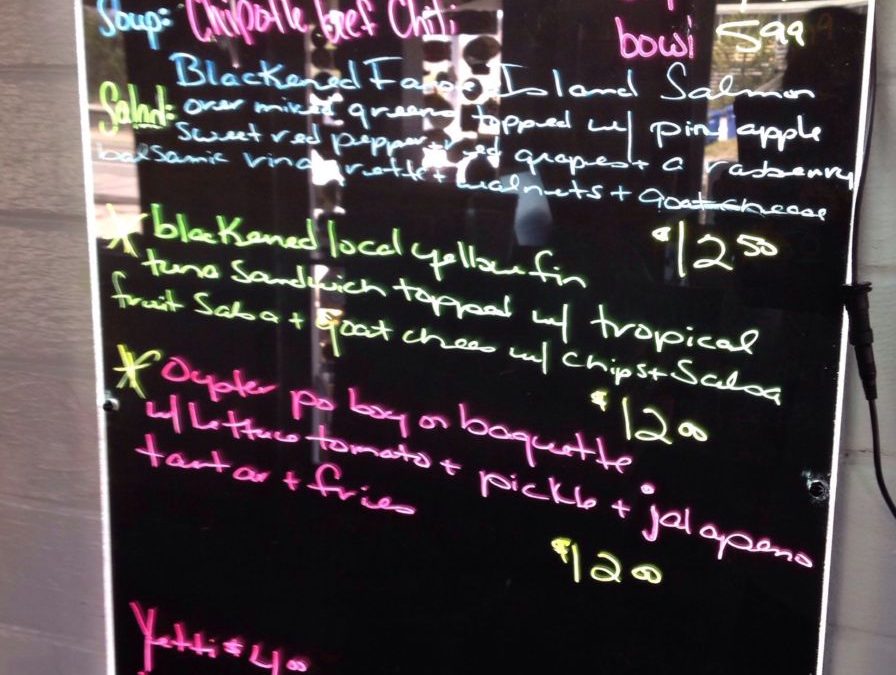 Soup: Chipotle Beef Chili
bowl 599
Blackened Faroe Island Salmon
Salad: over mixed greens topped w/ pineapple
sweet red pepper + red grapes + a rasberry
balsamic vinagrette + walnuts + goat cheese
$12 50
* blackened local yellowfin
tuna Sandwich topped w/ tropical
fruit Salsa + goat chees w/ chips + Salsa
$12 00
* Oyster po boy on baguette
w/ lettuce tomato + pickle + jalapeno
tartar + fries
$12 00
Yetti $4 00